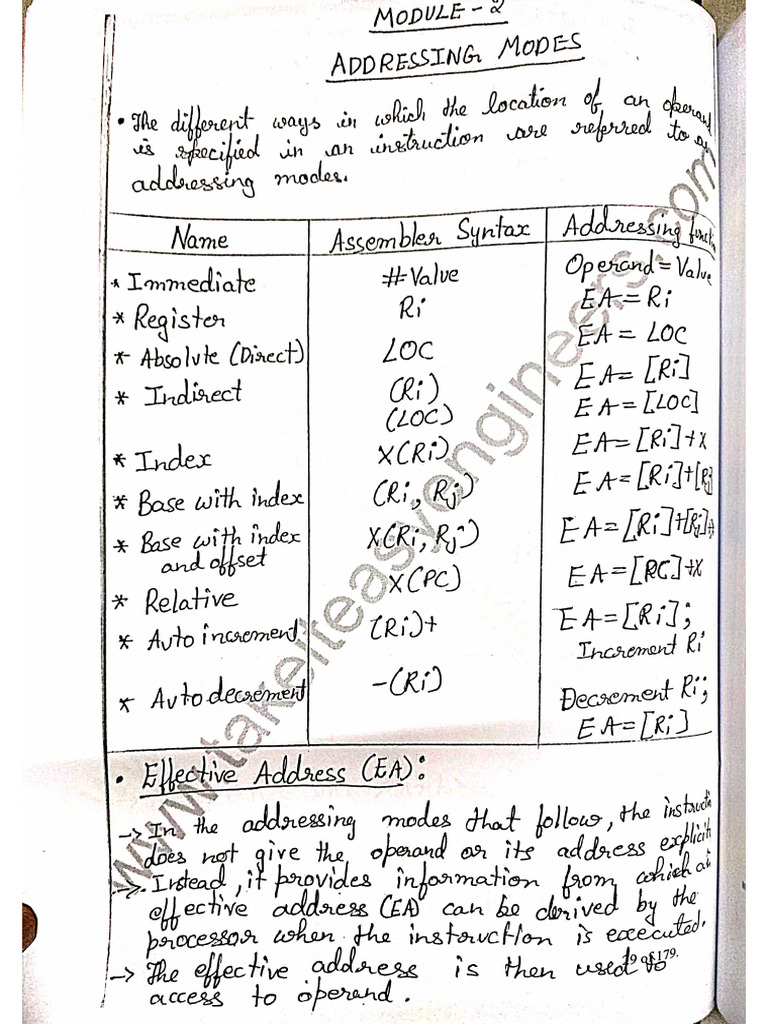 MODULE-2
ADDRESSING MODES
• The different ways in which the location of an operand
is specified in an instruction are referred to as
addressing modes.
Name | Assembler Syntax | Addressing function
* Immediate | #Value | Operand = Value
* Register | Ri | EA = Ri
* Absolute (Direct) | LOC | EA = LOC
* Indirect | (Ri) | EA = [Ri]
(LOC) | EA = [LOC]
* Index | X(Ri) | EA = [Ri]+X
* Base with index | (Ri, Rj) | EA = [Ri]+[Rj]
* Base with index | X(Ri, Rj) | EA = [Ri]+[Rj]+
and offset
* Relative | X(PC) | EA = [PC]+X
* Auto increment | (Ri)+ | EA = [Ri];
Increment Ri
* Auto decrement | -(Ri) | Decrement Ri;
EA = [Ri]
• Effective Address (EA):
-> In the addressing modes that follow, the instructi
does not give the operand or its address explicit
->. Instead, it provides information from which a
effective address (EA) can be derived by the
processor when the instruction is executed.
-> The effective address is then used to
access to operand.
of 179.
www.takeiteasyengineers.com